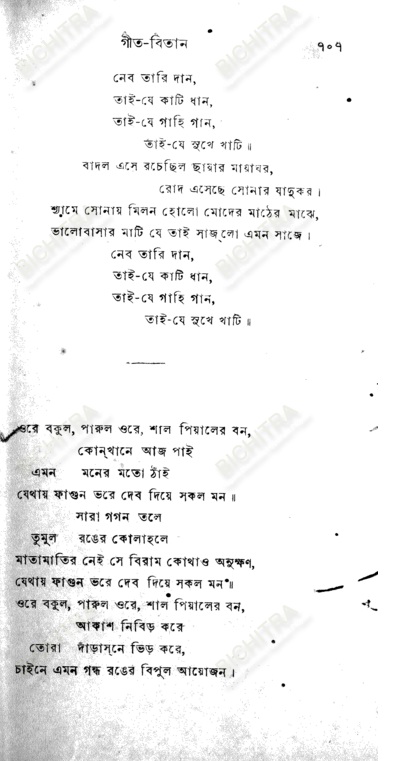 গীত-বিতান ৭০৭
নেব তারি দান,
তাই-যে কাটি ধান,
তাই-যে গাহি গান,
তাই-যে সুখে খাটি॥
বাদল এসে রচেছিল ছায়ার মায়াঘর,
রোদ এসেছে সোনার যাদুকর।
শ্যামে সোনায় মিলন হোলো মোদের মাঠের মাঝে,
ভালোবাসার মাটি যে তাই সাজ্‌লো এমন সাজে।
নেব তারি দান,
তাই-যে কাটি ধান,
তাই-যে গাহি গান,
তাই-যে সুখে খাটি॥
ওরে বকুল, পারুল ওরে, শাল পিয়ালের বন,
কোন্‌খানে আজ পাই
এমন মনের মতো ঠাঁই
যেথায় ফাগুন ভরে দেব দিয়ে সকল মন॥
সারা গগন তলে
তুমুল রঙের কোলাহলে
মাতামাতির নেই সে বিরাম কোথাও অনুক্ষণ,
যেথায় ফাগুন ভরে দেব দিয়ে সকল মন॥
ওরে বকুল, পারুল ওরে, শাল পিয়ালের বন,
আকাশ নিবিড় করে
তোরা দাঁড়াস্‌নে ভিড় করে,
চাইনে এমন গন্ধ রঙের বিপুল আয়োজন।
BICHITRA
BICHITRA
BICHITRA
BICHITRA
BICHITRA
BICHITRA